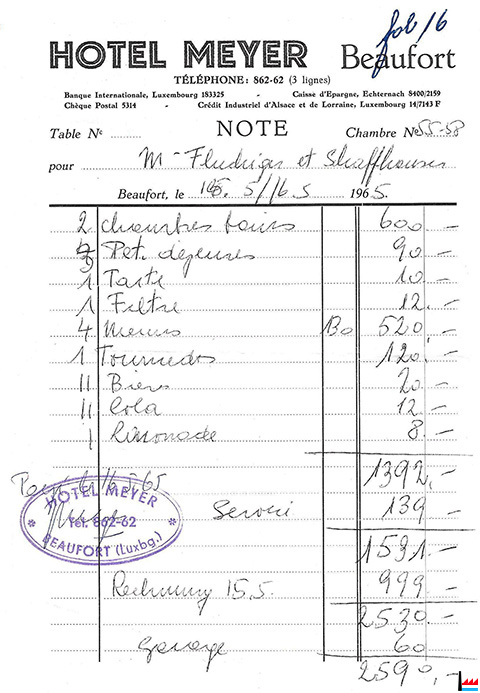 fol. 16
HOTEL MEYER Beaufort
TÉLÉPHONE: 862-62 (3 lignes)
Banque Internationale, Luxembourg 183325 - Caisse d'Epargne, Echternach 8400/2159
Chèque Postal 5314 - Crédit Industriel d'Alsace et de Lorraine, Luxembourg 14/7143 F
Table No NOTE Chambre No 55-58
pour M et Schaffhauser
Beaufort, le 5/16.5 1965.
2 chambres bains 600.-
3 Pet. dejeuners 90.-
1 Tarte 10.-
1 Filtre 12.-
4 Menus 130 520.-
1 Tournedos 120.-
II Bières 20.-
II Cola 12.-
1 Limonade 8.-
1392.-
65
HOTEL MEYER
Tél. 862-62
BEAUFORT (Luxbg.)
Service 139.-
1531.-
Rechnung 15.5. 999.-
2530.-
Garage 60
2590.-